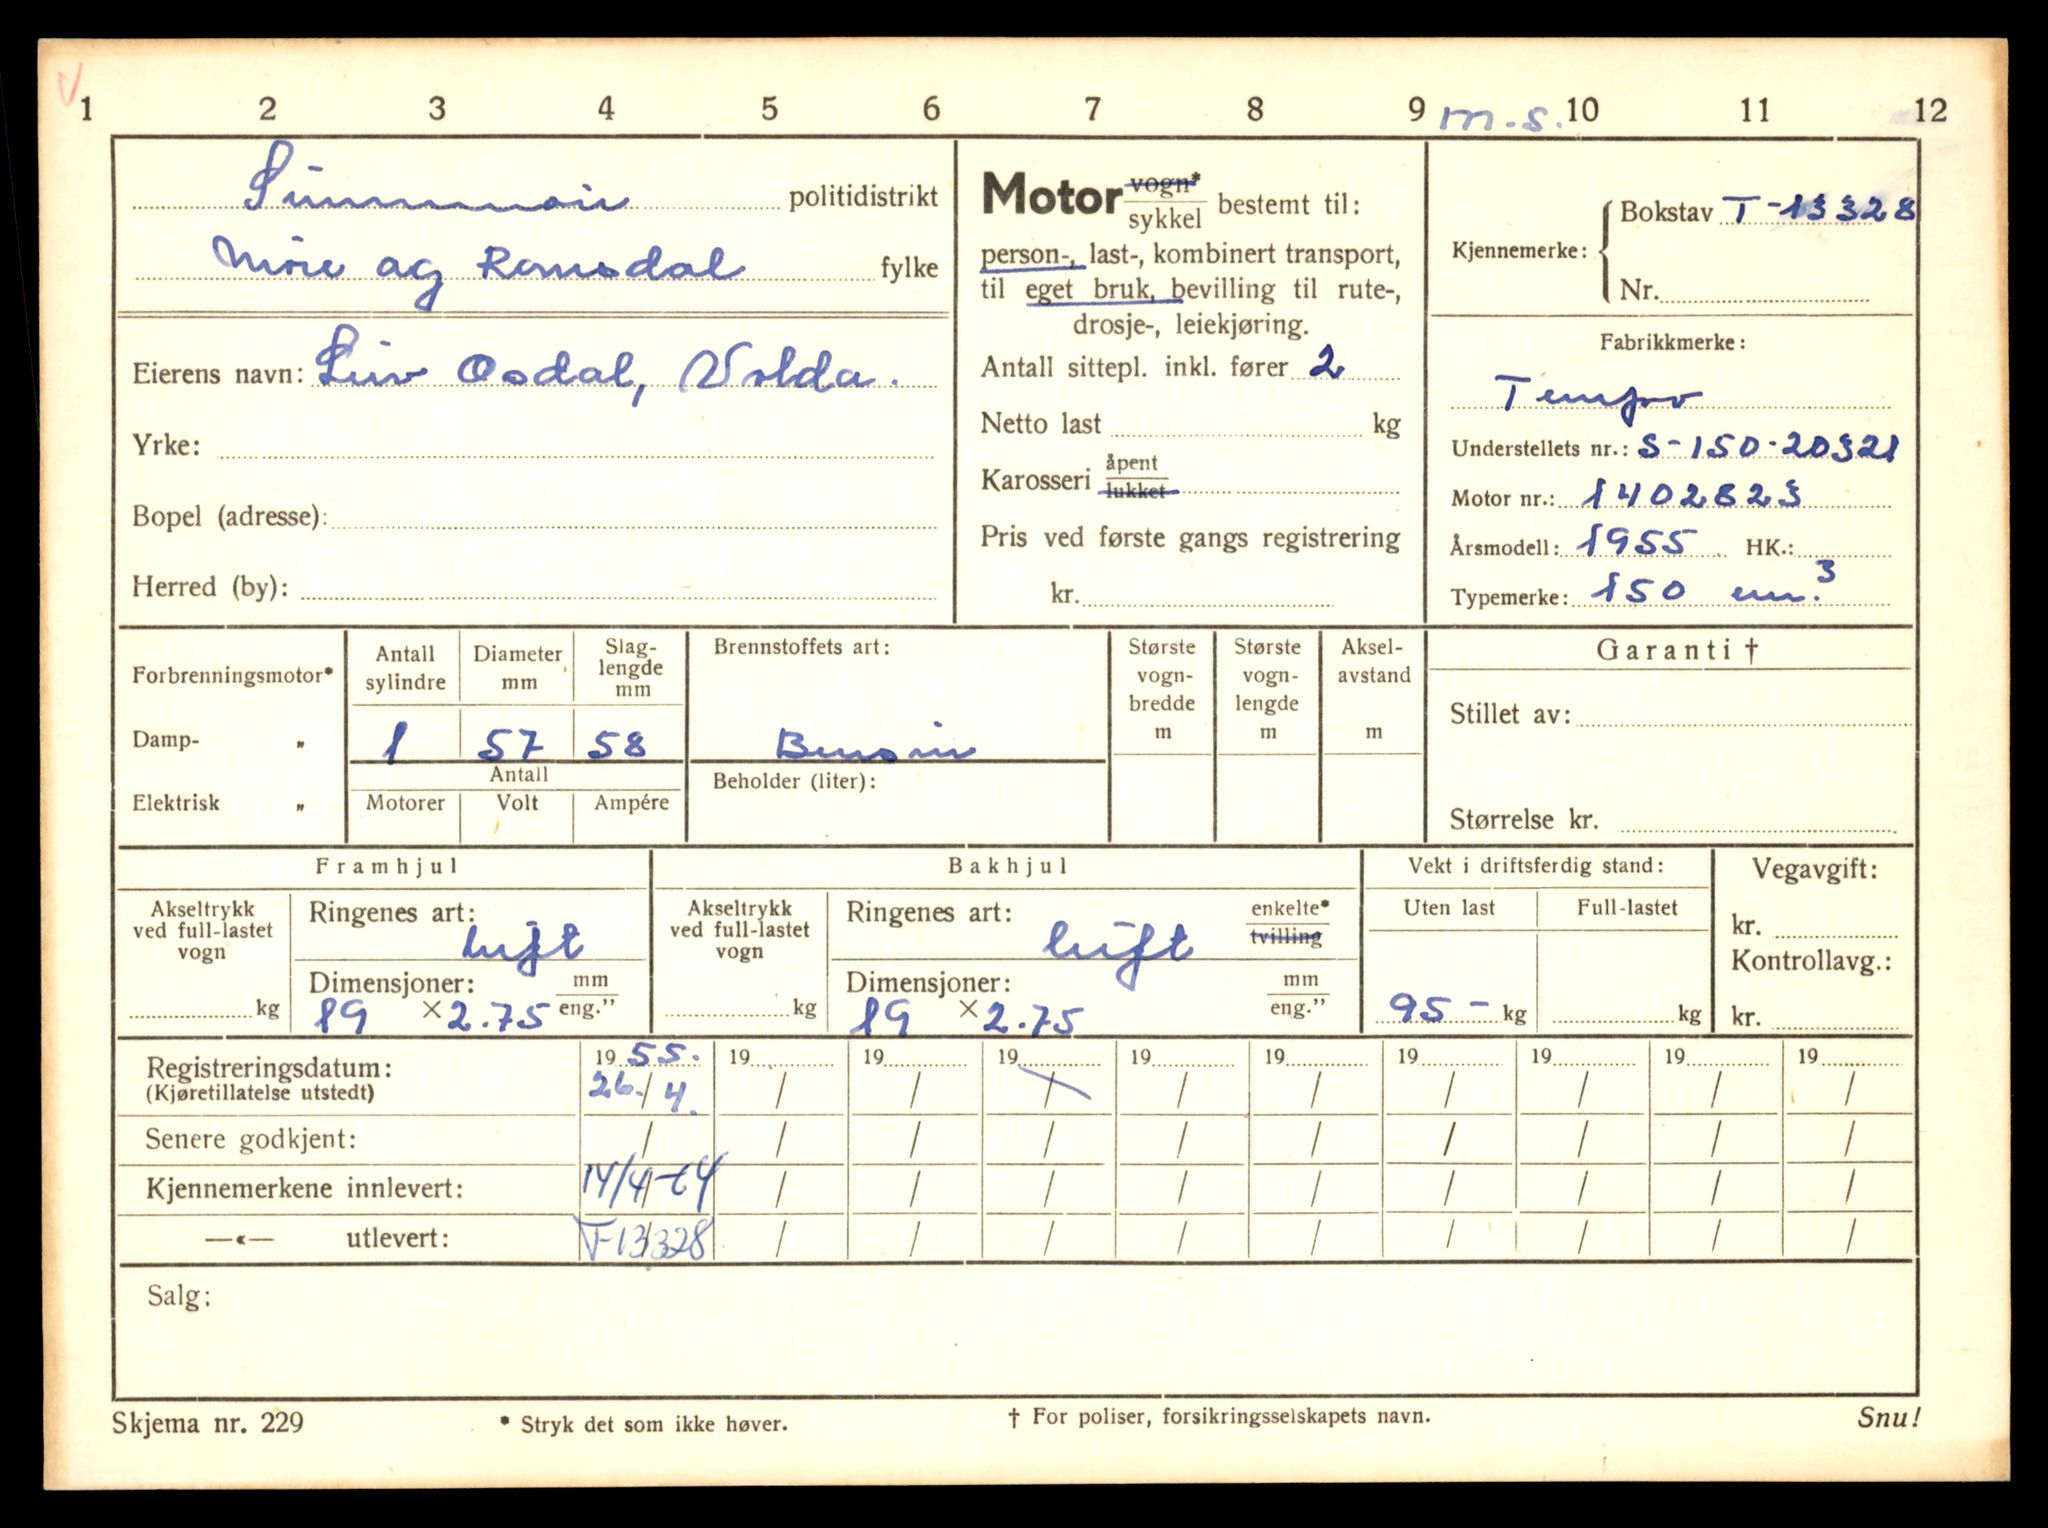 1 2 3 4 5 6 7 8 9 m.s. 10 11 12
Sunnmøre politidistrikt
Møre og Romsdal fylke
Eierens navn: Osdal, Volda.
Yrke:
Bopel (adresse):
Herred (by):
Motor vogn* / sykkel bestemt til:
person-, last-, kombinert transport,
til eget bruk, bevilling til rute-,
drosje-, leiekjøring.
Antall sittepl. inkl. fører 2
Netto last kg
Karosseri åpent / lukket
Pris ved første gangs registrering
kr.
Kjennemerke: Bokstav T-13328
Nr.
Fabrikkmerke:
Tempo
Understellets nr.: S-150-20321
Motor nr.: 1402823
Årsmodell: 1955 HK.:
Typemerke: 150 cm.³
Forbrenningsmotor*
Damp- „
Elektrisk „
Antall sylindre
Diameter mm
Slag-
lengde
mm
1 57 58
Antall
Motorer Volt Ampére
Brennstoffets art:
Bensin
Beholder (liter):
Største
vogn-
bredde
m
Største
vogn-
lengde
m
Aksel-
avstand
m
Garanti †
Stillet av:
Størrelse kr.
Framhjul
Akseltrykk
ved full-lastet
vogn
kg
Ringenes art:
luft
Dimensjoner: mm / eng.”
19 × 2.75
Bakhjul
Akseltrykk
ved full-lastet
vogn
kg
Ringenes art: enkelte* / tvilling
luft
Dimensjoner: mm / eng.”
19 × 2.75
Vekt i driftsferdig stand:
Uten last Full-lastet
95- kg kg
Vegavgift:
kr.
Kontrollavg.:
kr.
Registreringsdatum: 1955. 19 19 19 19 19 19 19 19 19
(Kjøretillatelse utstedt) 26./4. / / / / / / / / /
Senere godkjent: / / / / / / / / / /
Kjennemerkene innlevert: 14/4-64 / / / / / / / / /
—«— utlevert: T-13328 / / / / / / / / /
Salg:
Skjema nr. 229 * Stryk det som ikke høver. † For poliser, forsikringsselskapets navn. Snu!